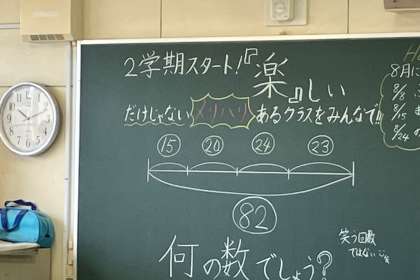 2学期スタート!『楽』しい
だけじゃない メリハリ あるクラスをみんなで!!
15 20 24 23
82
何の数でしょう?
笑う回数
ではないこと
8月に
8/8
8/15
8/24